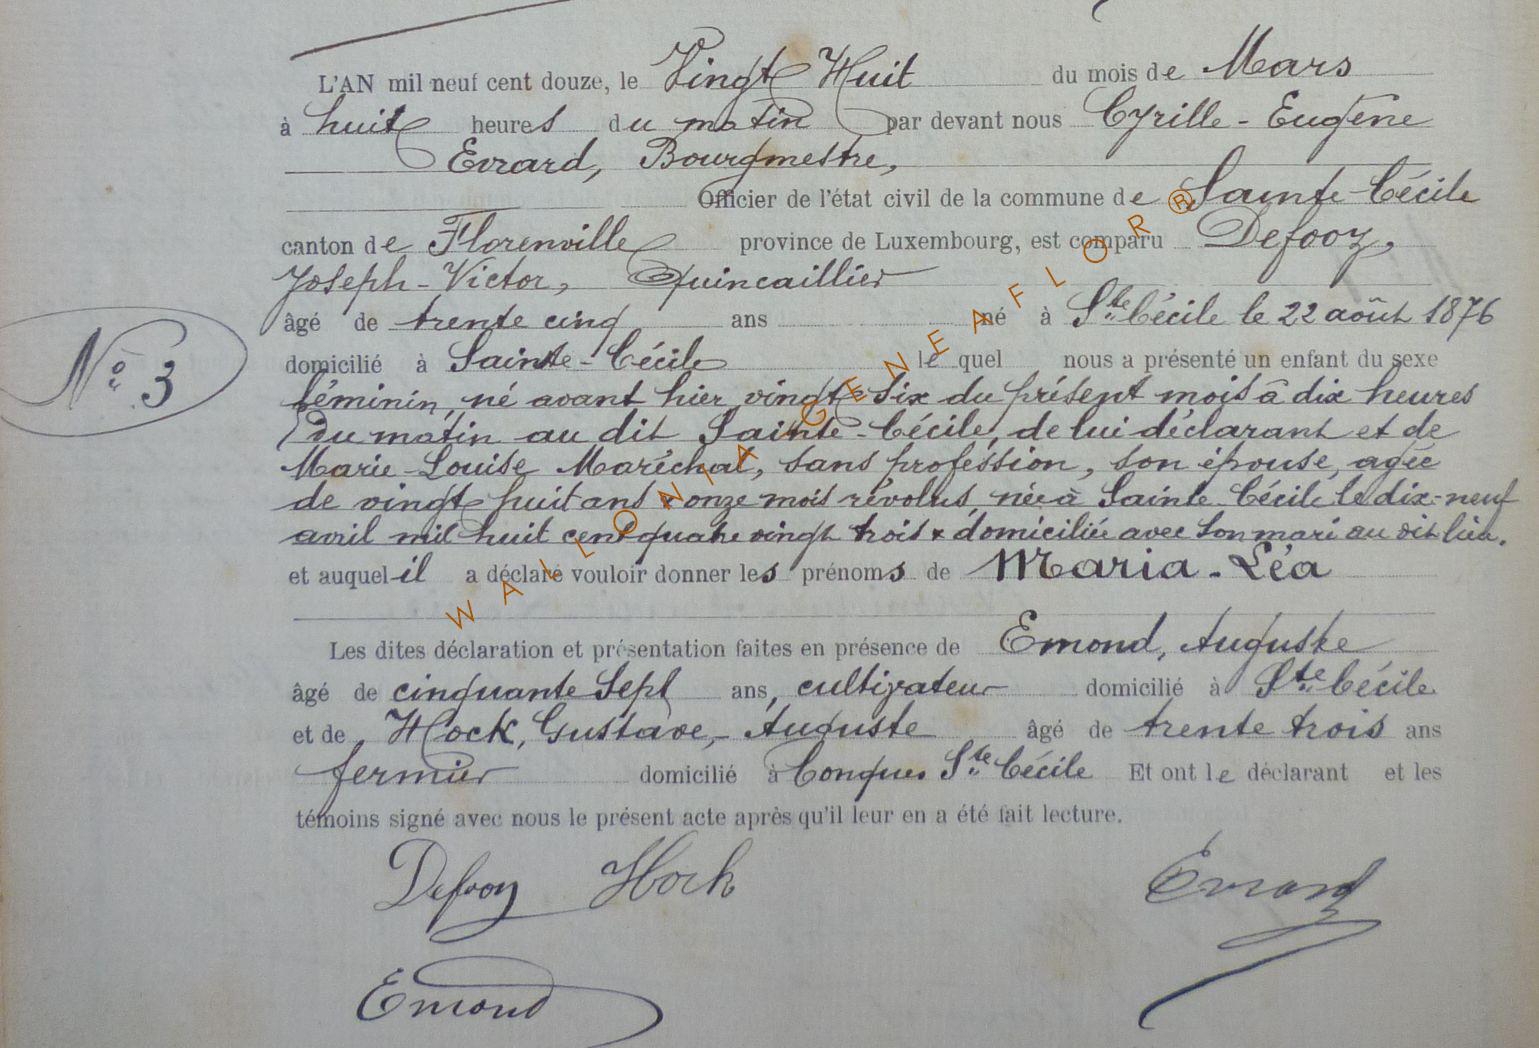 L'AN mil neuf cent douze, le Vingt Huit du mois de Mars
à huit heures du matin par devant nous Cyrille-Eugène
Evrard, Bourgmestre,
Officier de l'état civil de la commune de Sainte-Cécile
canton de Florenville province de Luxembourg, est comparu Defooz,
Joseph-Victor, Quincaillier
âgé de trente cinq ans né à Ste Cécile le 22 août 1876
N° 3
domicilié à Sainte-Cécile lequel nous a présenté un enfant du sexe
féminin, né avant hier vingt six du présent mois à dix heures
du matin au dit Sainte-Cécile, de lui déclarant et de
Marie-Louise Maréchal, sans profession, son épouse, agée
de vingt huit ans & onze mois révolus, née à Sainte Cécile le dix-neuf
avril mil huit cent quatre vingt trois & domiciliée avec son mari au dit lieu.
et auquel il a déclaré vouloir donner les prénoms de Maria-Léa
Les dites déclaration et présentation faites en présence de Emond, Auguste
âgé de cinquante sept ans, cultivateur domicilié à Ste Cécile
et de Hock, Gustave,-Auguste âgé de trente trois ans
fermier domicilié à Conques Ste Cécile Et ont le déclarant et les
témoins signé avec nous le présent acte après qu'il leur en a été fait lecture.
Defooz Hock Evrard
Emond
WALLONIA GENEAFLOR®